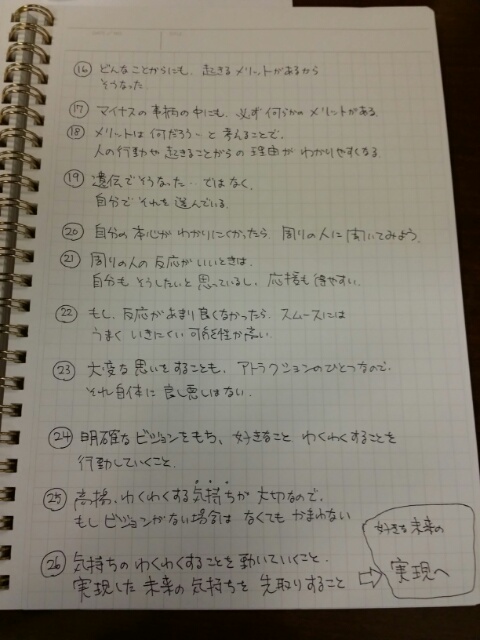 ⑯ どんなことがらにも、起きるメリットがあるから
そうなった
⑰ マイナスの事柄の中にも、必ず何らかのメリットがある
⑱ メリットは何だろう〜と考えることで、
人の行動や起きることがらの理由がわかりやすくなる
⑲ 遺伝でそうなった‥ではなく、
自分でそれを選んでいる。
⑳ 自分の本心がわかりにくかったら、周りの人に聞いてみよう。
㉑ 周りの人の反応がいいときは、
自分もそうしたいと思っているし、応援も得やすい。
㉒ もし、反応があまり良くなかったら、スムースには
うまくいきにくい可能性が高い。
㉓ 大変な思いをすることも、アトラクションのひとつなので、
それ自体に良し悪しはない。
㉔ 明確なビジョンをもち、好きなこと わくわくすることを
行動していくこと。
㉕ 高揚、わくわくする気持ちが大切なので、
もしビジョンがない場合は なくてもかまわない
㉖ 気持ちのわくわくすることを動いていくこと、
実現した未来の気持ちを先取りすること
⇨ 好きな未来の
実現へ